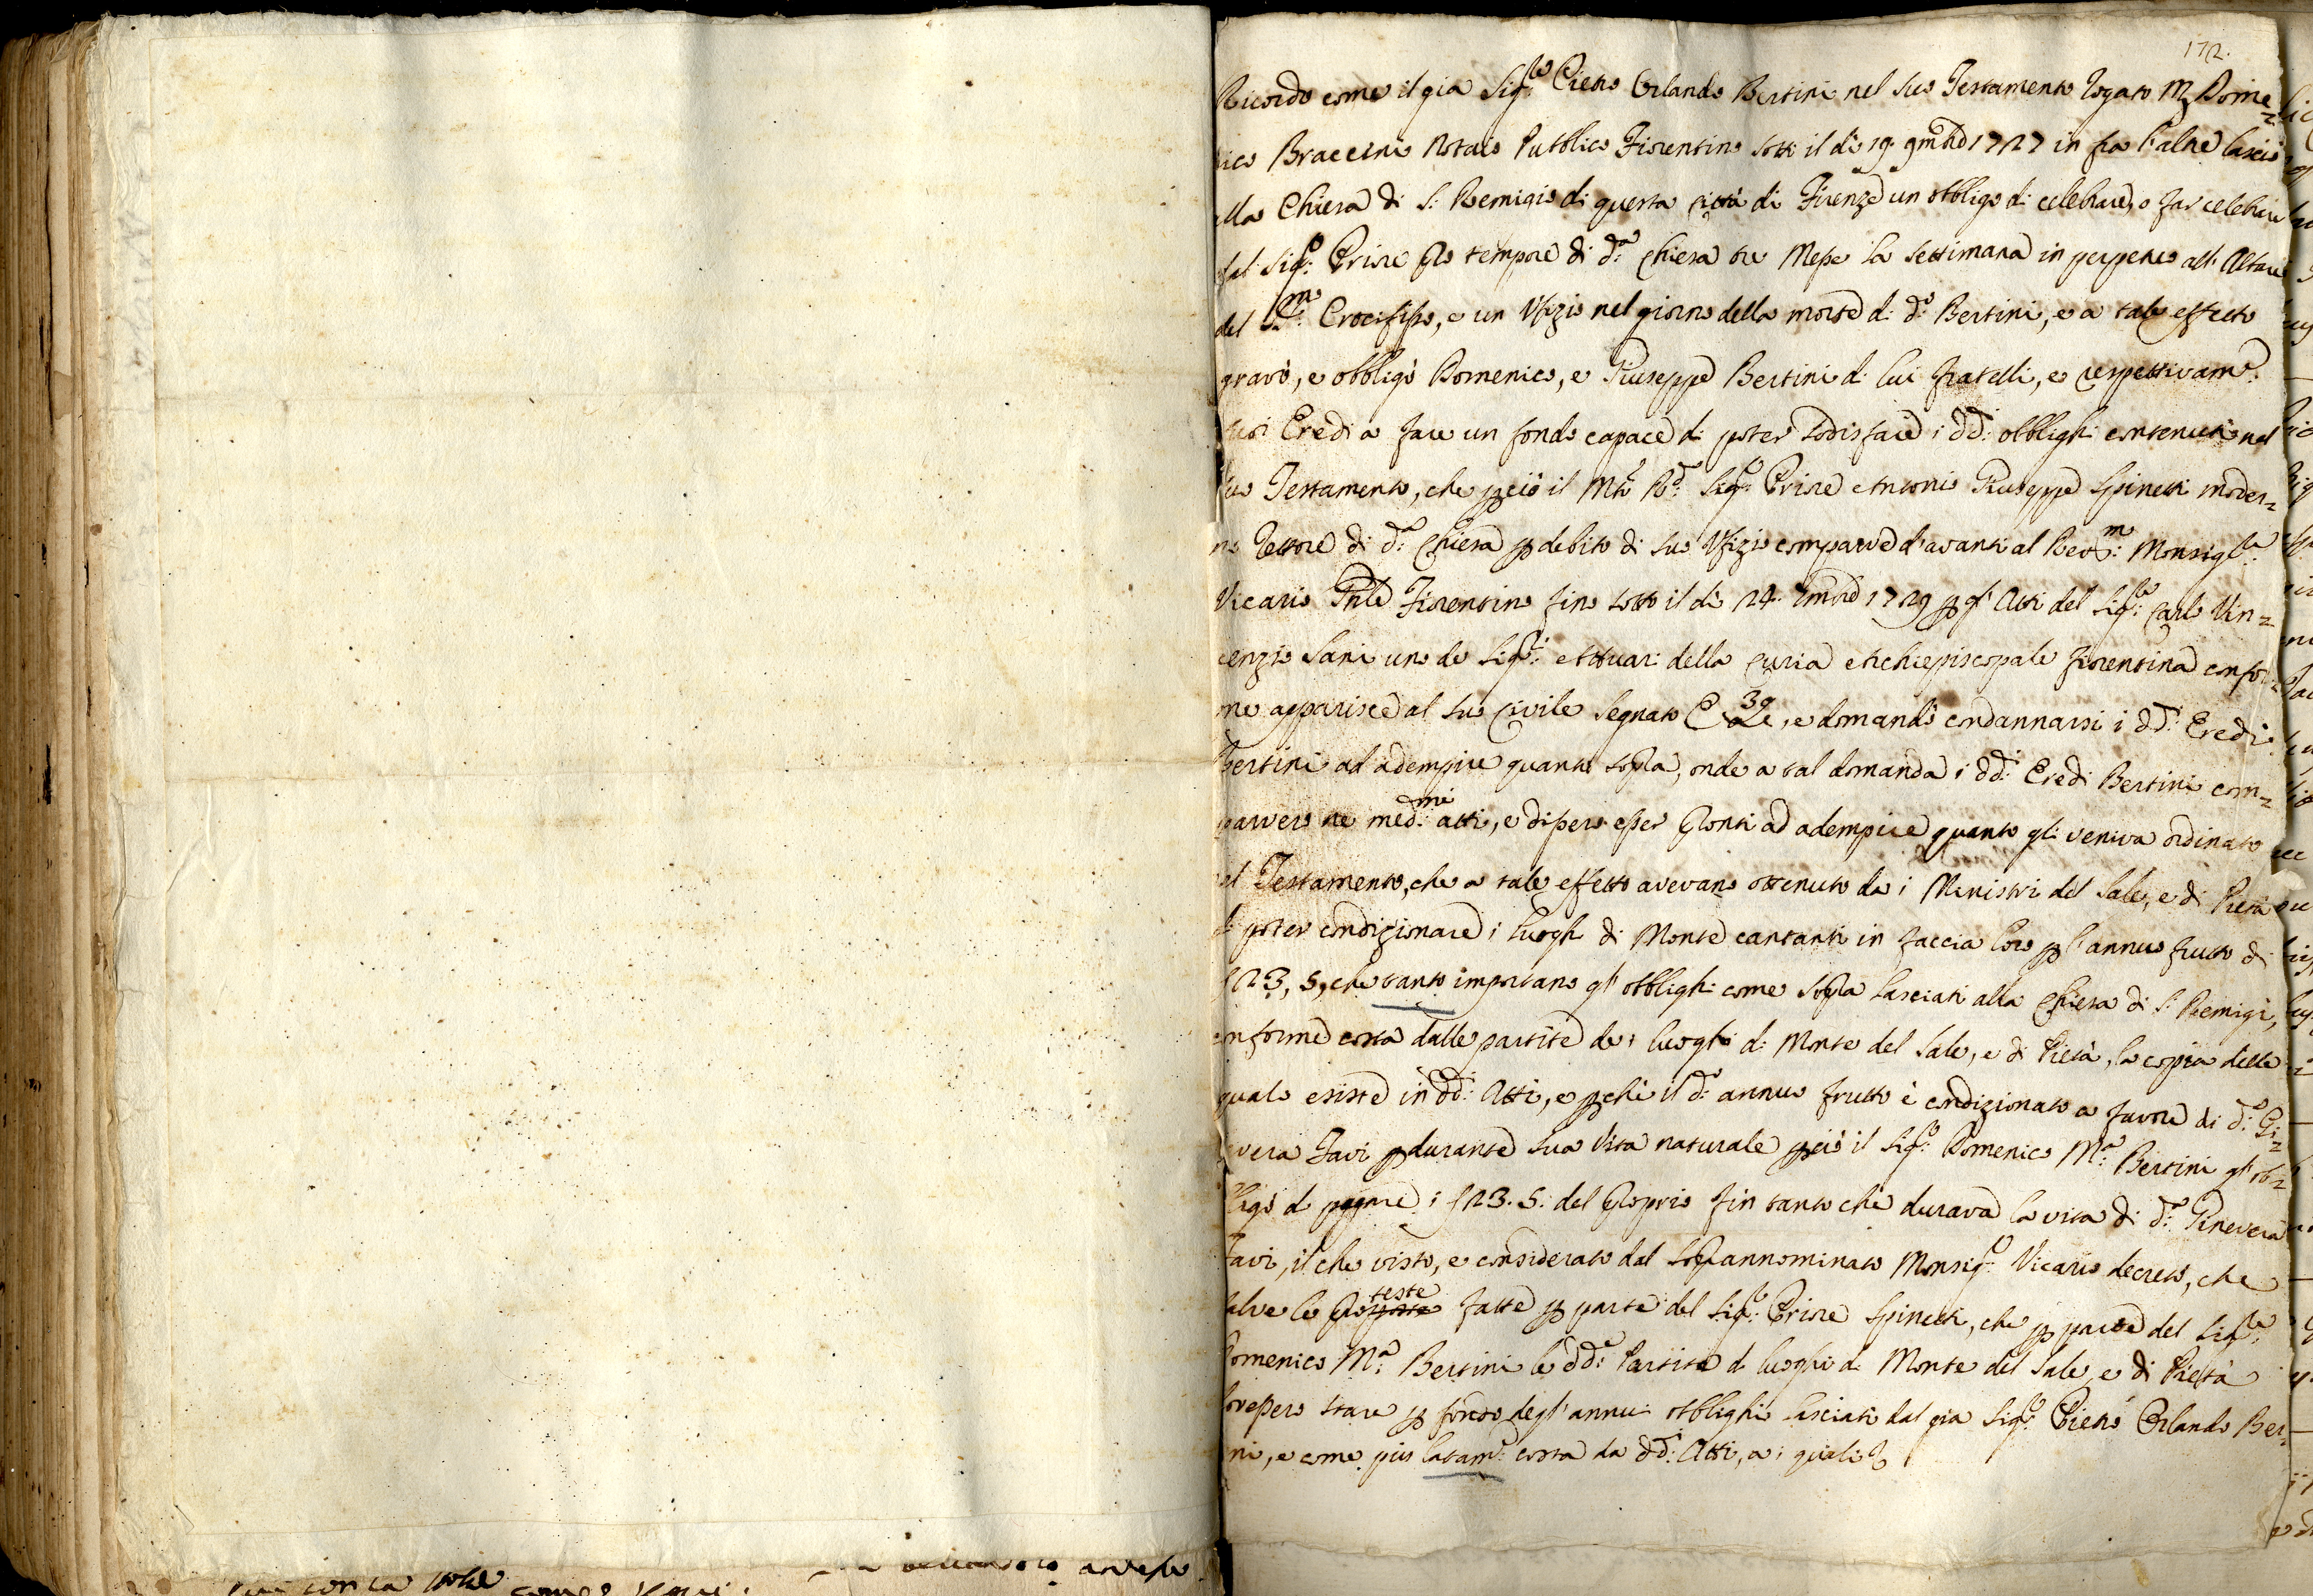 172.
Ricordo come il gia Sig.re Pietro Orlando Bertini nel suo Testamento rogato M. Dome=
nico Braccini Notaio Pubblico Fiorentino sotto il dì 19. 9mbre 1727 in fra l'altre lasciò
alla Chiesa di S. Remigio di questa città di Firenze un obbligo di celebrare, o far celebrare
dal Sig.re Priore pro tempore di d.a Chiesa tre Messe la settimana in perpetuo all'Altare
del S.mo Crocifisso, e un Ufizio nel giorno della morte di d.o Bertini, e a tale effetto
gravò, e obbligò Domenico, e Giuseppe Bertini di lui fratelli, e respettivam.e
suoi Eredi a fare un fondo capace di poter sodisfare i dd.i obblighi contenuti nel
suo Testamento, che perciò il Mto Rdo Sig.re Priore Antonio Giuseppe Spinetti moder=
no Rettore di d.a Chiesa p debito di suo Ufizio comparve d'avanti al Rev.mo Monsig.re
Vicario Gnle Fiorentino fino sotto il dì 24. 1729 p gl'Atti del Sig.re Carlo Vin=
cenzio Sani uno de Sig.ri Attuari della Curia Archiepiscopale fiorentina confor=
me apparisce al suo Civile segnato 39, e domandò condannarsi i dd.i Eredi
Bertini ad adempire quanto sopra, onde a tal domanda i dd.i Eredi Bertini com=
parvero ne med.mi atti, e dissero esser pronti ad adempire quanto gli veniva ordinato
nel Testamento, che a tale effetto avevano ottenuto da i Ministri del Sale, e di Pietà
di poter condizionare i luoghi di Monte cantanti in faccia loro p l'annuo frutto di
∫23, 5, che tanto importano gl'obblighi come sopra lasciati alla Chiesa di S. Remigi,
conforme costa dalle partite de i luoghi di Monte del Sale, e di Pietà, la copia delle
quale esiste in dd.i Atti, e pche il d.o annuo frutto è condizionato a favore di d.a Gi=
nevera Favi p durante sua Vita naturale perciò il Sig.re Domenico M.a Bertini gl'ob=
bligò di pagare i ∫23. 5. del proprio fin tanto che durava la vita di d.a Ginevera
Favi, il che visto, e considerato dal soprannominato Monsig.re Vicario decretò, che
salve le proteste fatte p parte del Sig.re Priore Spinetti, che p parte del Sig.re
Domenico M.a Bertini le dd.e Partite di luoghi di Monte del Sale, e di Pietà
dovessero stare p fondo degl'annui obblighi lasciati dal gia Sig.re Pietro Orlando Ber=
tini, e come più latam.e costa da dd.i Atti, a i quali